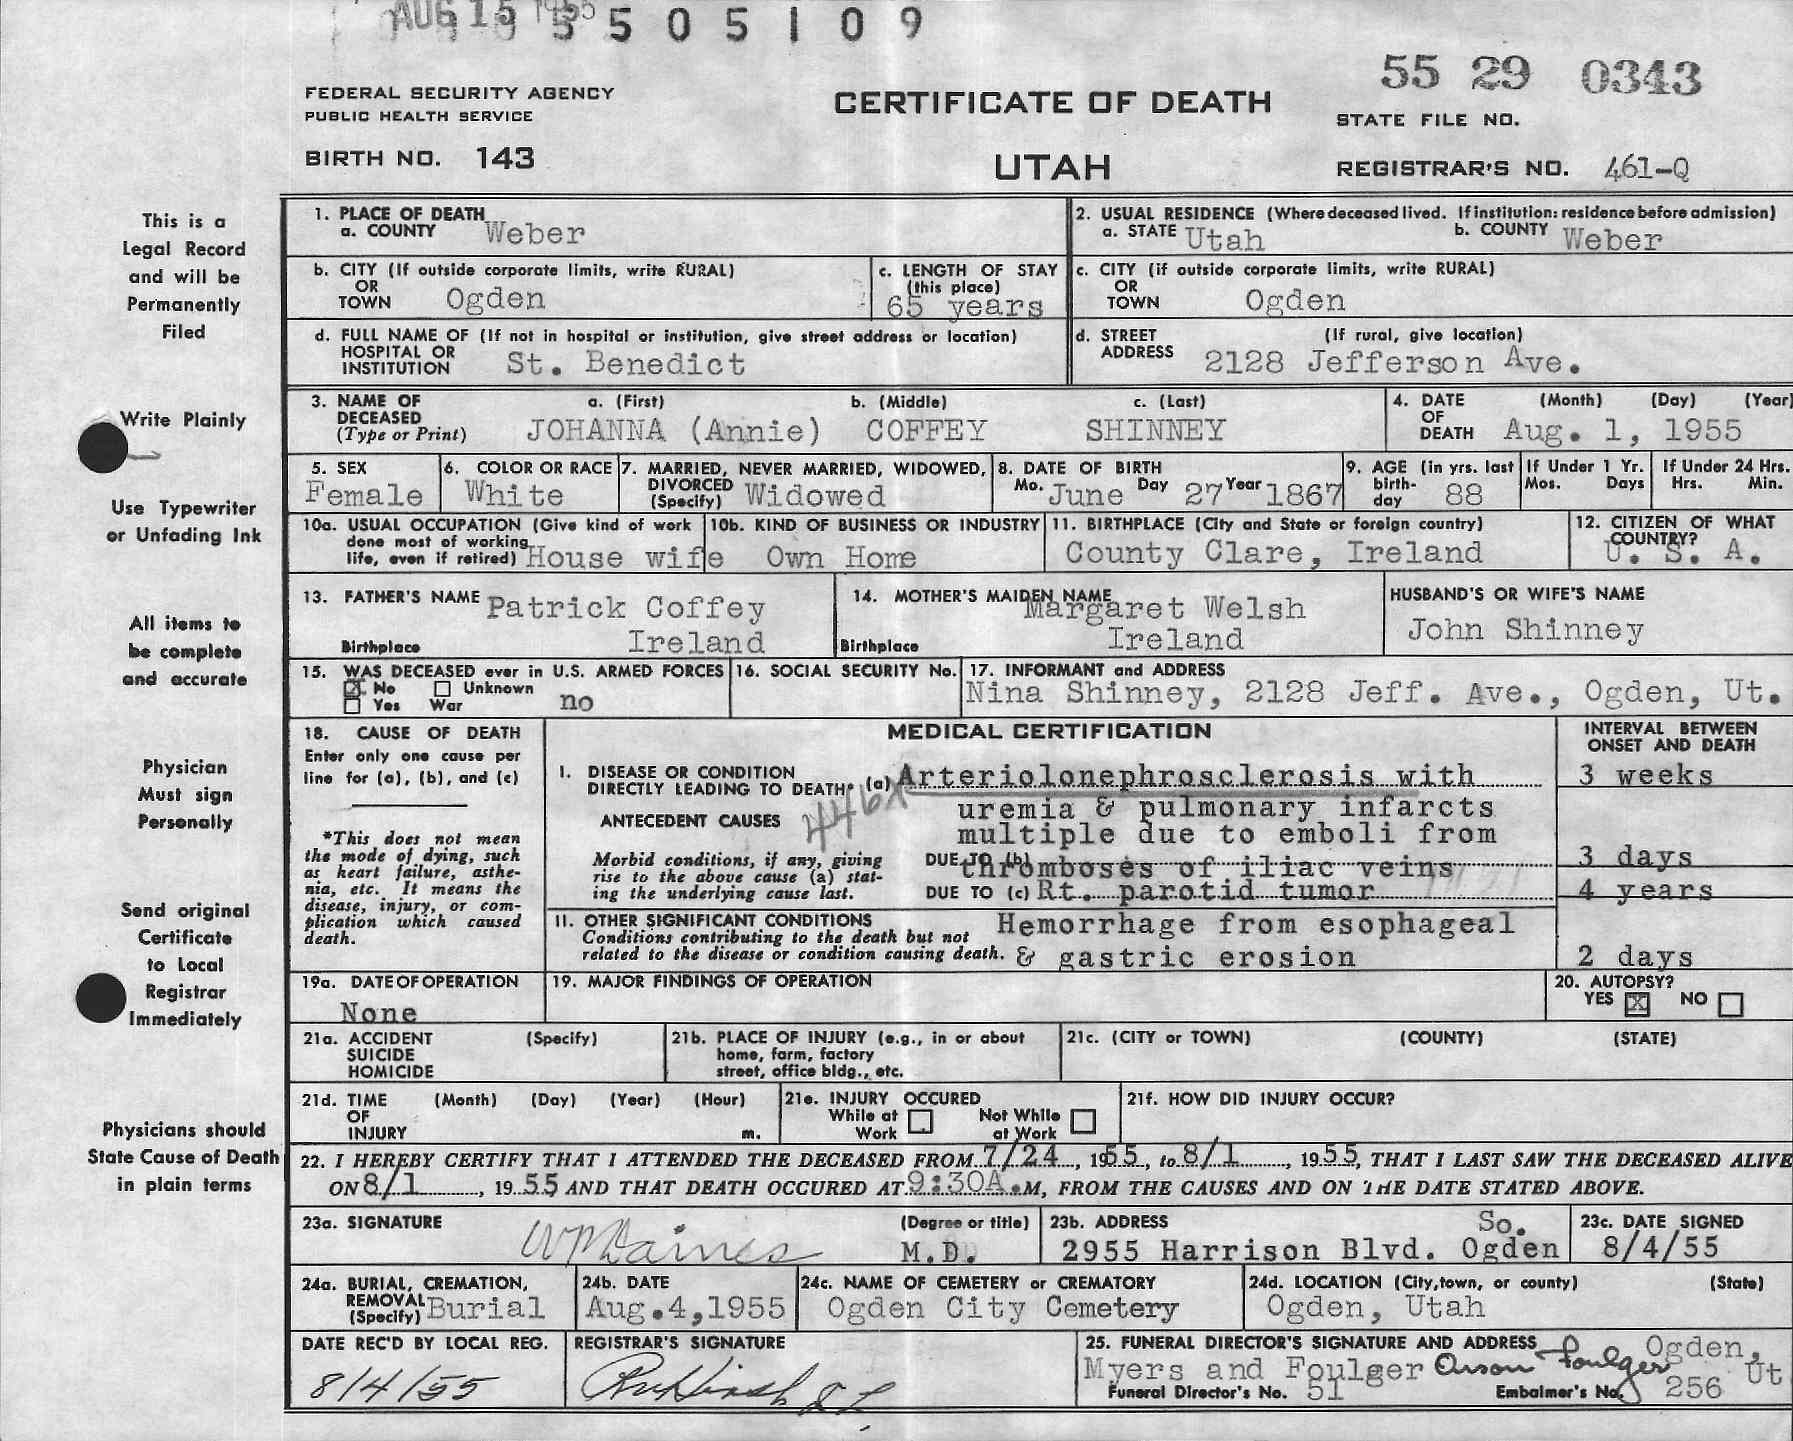 AUG 15 1955 5 5 0 5 1 0 9
55 29 0343
FEDERAL SECURITY AGENCY
PUBLIC HEALTH SERVICE
CERTIFICATE OF DEATH
STATE FILE NO.
BIRTH NO. 143
UTAH
REGISTRAR'S NO. 461-Q
This is a
Legal Record
and will be
Permanently
Filed
Write Plainly
Use Typewriter
or Unfading Ink
All items to
be complete
and accurate
Physician
Must sign
Personally
Send original
Certificate
to Local
Registrar
Immediately
Physicians should
State Cause of Death
in plain terms
1. PLACE OF DEATH
a. COUNTY Weber
2. USUAL RESIDENCE (Where deceased lived. If institution: residence before admission)
a. STATE Utah b. COUNTY Weber
b. CITY (If outside corporate limits, write RURAL)
OR
TOWN Ogden
c. LENGTH OF STAY
(this place)
65 years
c. CITY (if outside corporate limits, write RURAL)
OR
TOWN Ogden
d. FULL NAME OF (If not in hospital or institution, give street address or location)
HOSPITAL OR
INSTITUTION St. Benedict
d. STREET (If rural, give location)
ADDRESS 2128 Jefferson Ave.
3. NAME OF a. (First) b. (Middle) c. (Last)
DECEASED
(Type or Print) JOHANNA (Annie) COFFEY SHINNEY
4. DATE (Month) (Day) (Year)
OF
DEATH Aug. 1, 1955
5. SEX
Female
6. COLOR OR RACE
White
7. MARRIED, NEVER MARRIED, WIDOWED,
DIVORCED
(Specify) Widowed
8. DATE OF BIRTH
Mo. June Day 27 Year 1867
9. AGE (in yrs. last
birth-
day 88
If Under 1 Yr.
Mos. Days
If Under 24 Hrs.
Hrs. Min.
10a. USUAL OCCUPATION (Give kind of work
done most of working
life, even if retired) House wife
10b. KIND OF BUSINESS OR INDUSTRY
Own Home
11. BIRTHPLACE (City and State or foreign country)
County Clare, Ireland
12. CITIZEN OF WHAT
COUNTRY?
U. S. A.
13. FATHER'S NAME Patrick Coffey
Birthplace Ireland
14. MOTHER'S MAIDEN NAME Margaret Welsh
Birthplace Ireland
HUSBAND'S OR WIFE'S NAME
John Shinney
15. WAS DECEASED ever in U.S. ARMED FORCES
X No Unknown
Yes War no
16. SOCIAL SECURITY No.
17. INFORMANT and ADDRESS
Nina Shinney, 2128 Jeff. Ave., Ogden, Ut.
18. CAUSE OF DEATH
Enter only one cause per
line for (a), (b), and (c)
*This does not mean
the mode of dying, such
as heart failure, asthe-
nia, etc. It means the
disease, injury, or com-
plication which caused
death.
MEDICAL CERTIFICATION
INTERVAL BETWEEN
ONSET AND DEATH
I. DISEASE OR CONDITION
DIRECTLY LEADING TO DEATH* (a) Arteriolonephrosclerosis with 3 weeks
446X
ANTECEDENT CAUSES uremia & pulmonary infarcts
multiple due to emboli from
Morbid conditions, if any, giving
rise to the above cause (a) stat-
ing the underlying cause last.
DUE TO (b) thromboses of iliac veins 3 days
DUE TO (c) Rt. parotid tumor 4 years
II. OTHER SIGNIFICANT CONDITIONS
Conditions contributing to the death but not
related to the disease or condition causing death.
Hemorrhage from esophageal
& gastric erosion 2 days
19a. DATE OF OPERATION
None
19. MAJOR FINDINGS OF OPERATION
20. AUTOPSY?
YES X NO
21a. ACCIDENT (Specify)
SUICIDE
HOMICIDE
21b. PLACE OF INJURY (e.g., in or about
home, farm, factory
street, office bldg., etc.
21c. (CITY or TOWN) (COUNTY) (STATE)
21d. TIME (Month) (Day) (Year) (Hour)
OF
INJURY m.
21e. INJURY OCCURED
While at Not While
Work at Work
21f. HOW DID INJURY OCCUR?
22. I HEREBY CERTIFY THAT I ATTENDED THE DECEASED FROM 7/24, 1955, to 8/1, 1955, THAT I LAST SAW THE DECEASED ALIVE
ON 8/1, 1955 AND THAT DEATH OCCURED AT 9:30A.M, FROM THE CAUSES AND ON THE DATE STATED ABOVE.
23a. SIGNATURE (Degree or title)
W M Daines M.D.
23b. ADDRESS So.
2955 Harrison Blvd. Ogden
23c. DATE SIGNED
8/4/55
24a. BURIAL, CREMATION,
REMOVAL
(Specify) Burial
24b. DATE
Aug.4,1955
24c. NAME OF CEMETERY or CREMATORY
Ogden City Cemetery
24d. LOCATION (City,town, or county) (State)
Ogden, Utah
DATE REC'D BY LOCAL REG.
8/4/55
REGISTRAR'S SIGNATURE
25. FUNERAL DIRECTOR'S SIGNATURE AND ADDRESS Ogden,
Myers and Foulger Orson Foulger Ut
Funeral Director's No. 51 Embalmer's No. 256